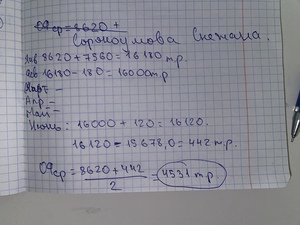 ОФср = 8620 +
Сорокоумова Снежана.
Янв 8620 + 7560 = 16180 т.р.
фев 16180 - 180 = 16000 т.р
Март -
Апр -
Май -
Июнь: 16000 + 120 = 16120.
16120 - 15678,0 = 442 т.р.
ОФср = 8620 + 442 / 2 = 4531 т.р.